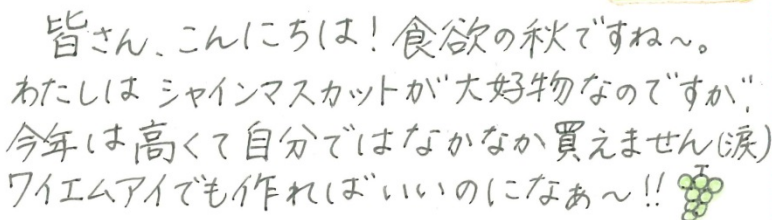 皆さん、こんにちは!食欲の秋ですね〜。
わたしは シャインマスカットが大好物なのですが、
今年は高くて自分ではなかなか買えません(涙)
ワイエムアイでも作ればいいのになぁ〜!!